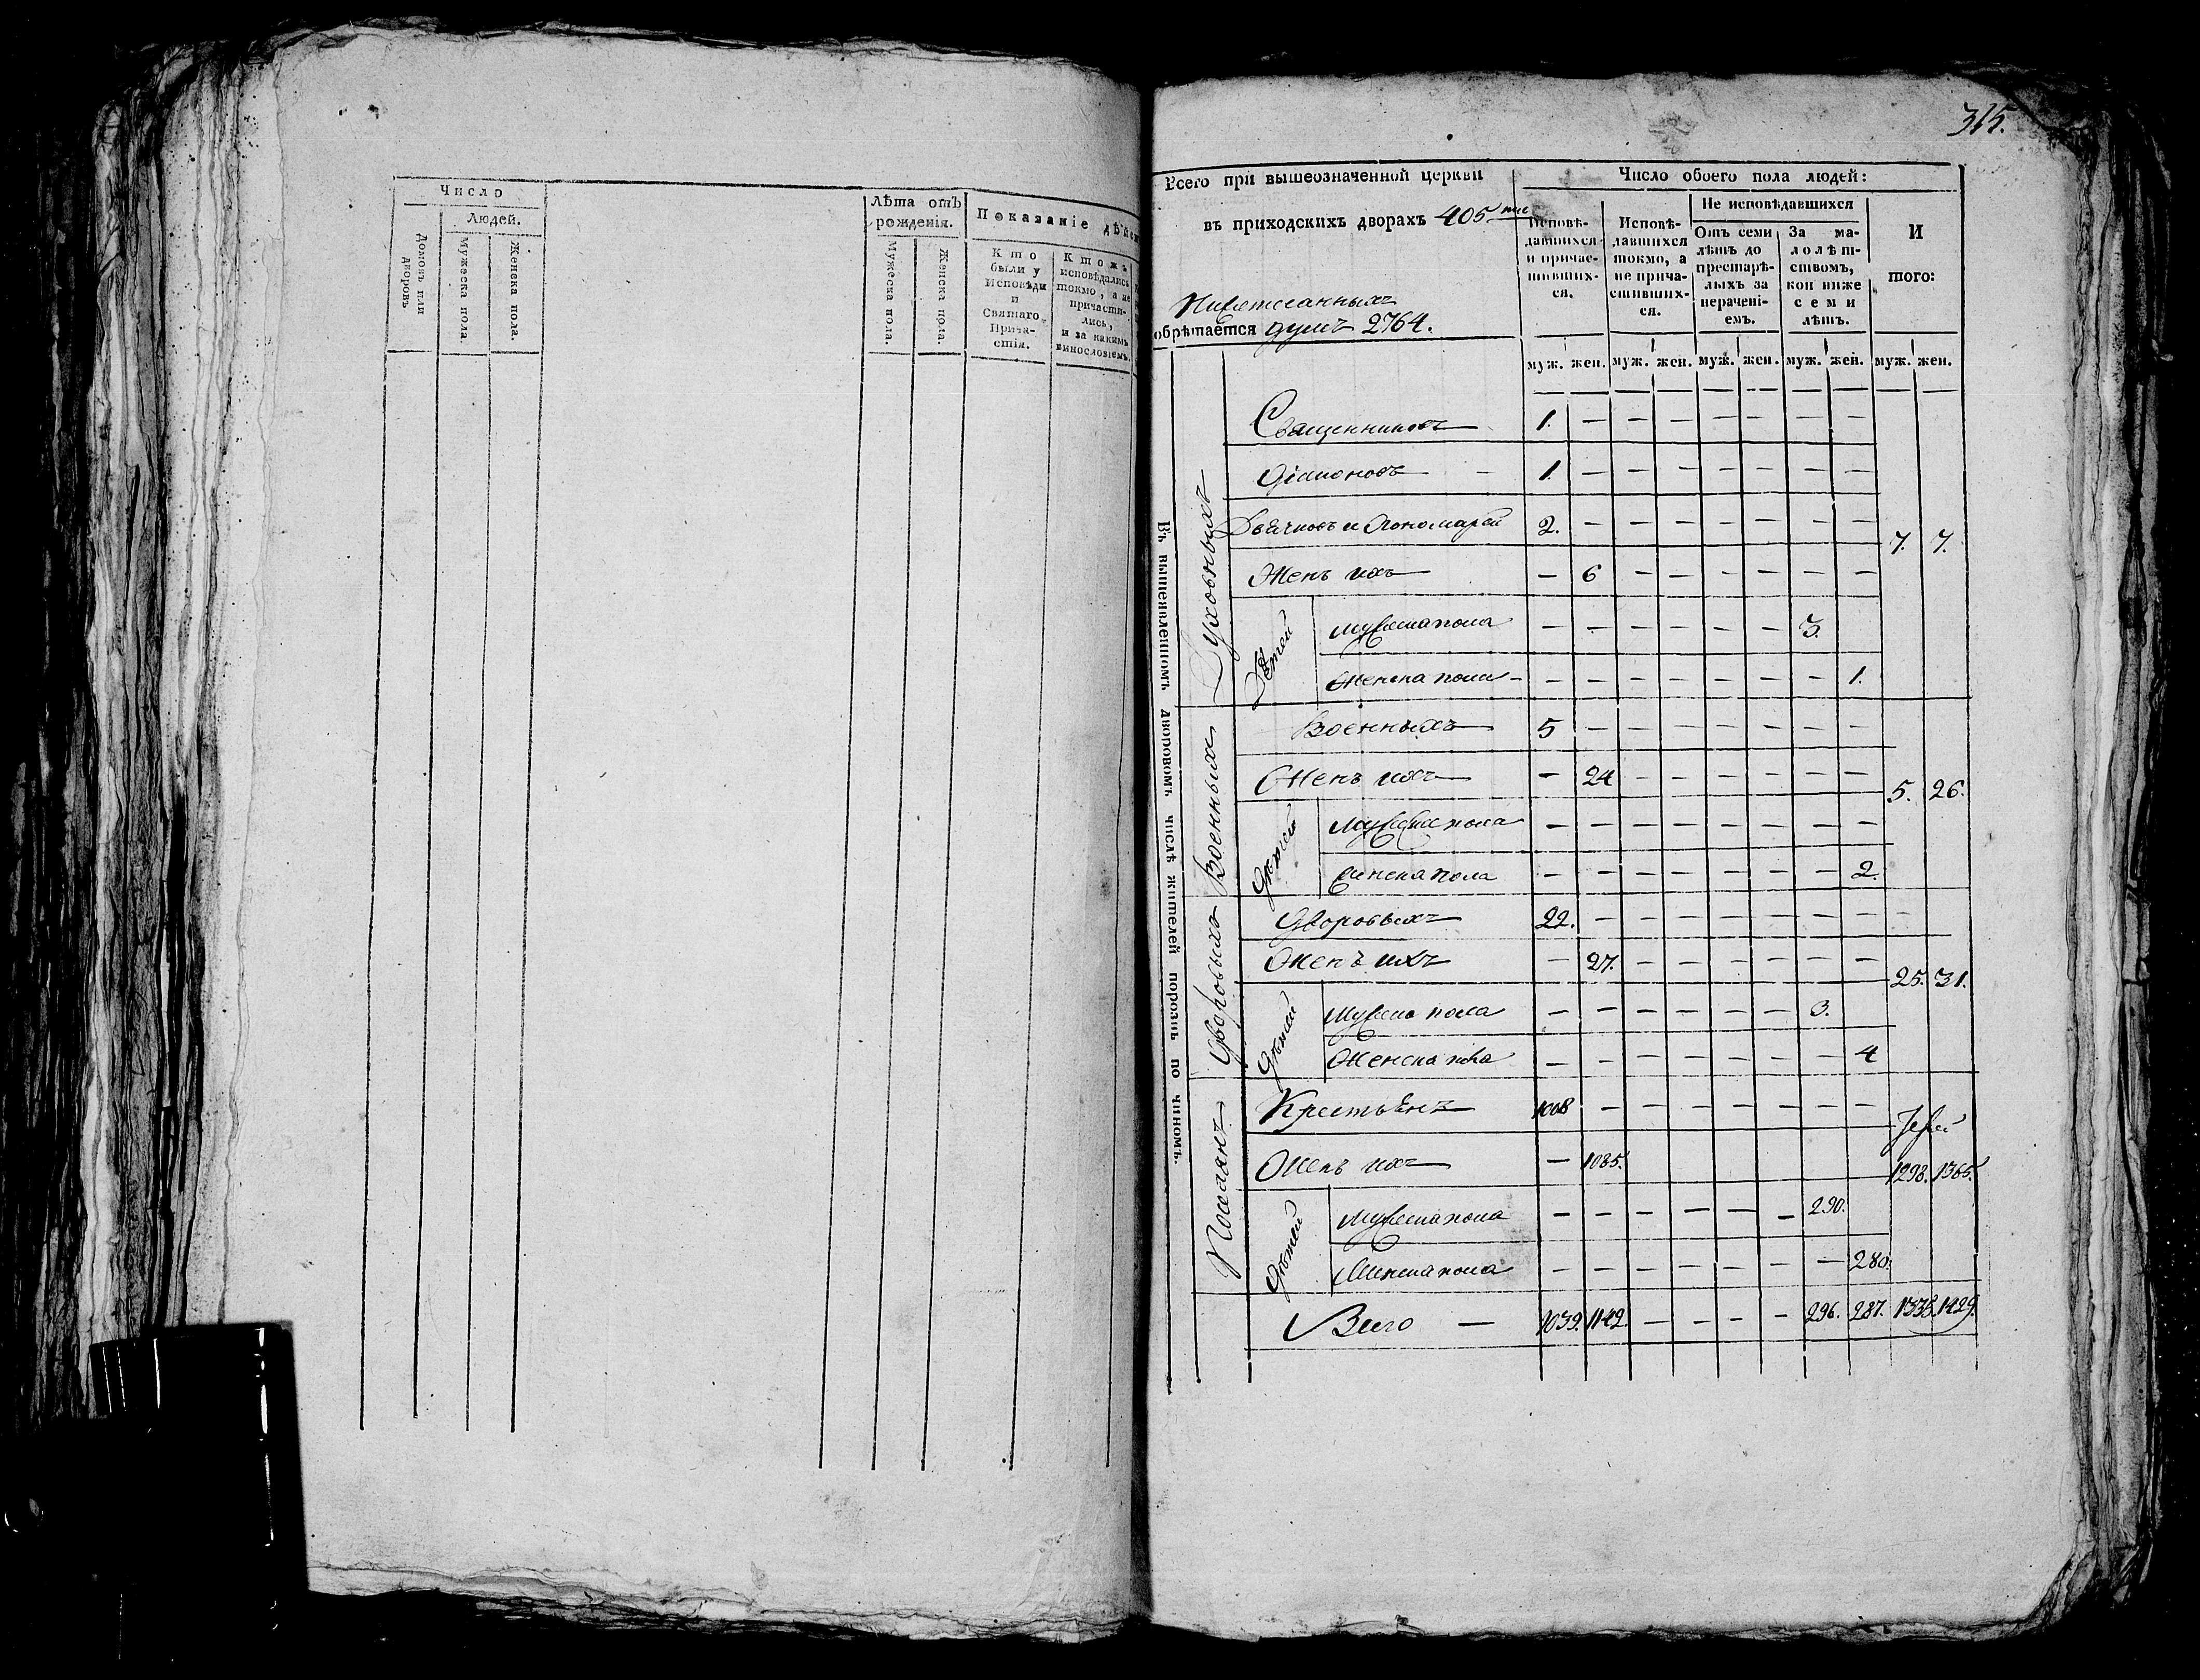 315.
Число
Людей.
Домовъ или дворовъ.
Мужеска пола.
Женска пола.
Лѣта отъ рожденія.
Мужеска пола.
Женска пола.
Показаніе
Кто были у Исповѣди и Святаго Прича-стія.
Ктожъ исповѣдались токмо, а не причасти-лись, и за какимъ винословіемъ.
Всего при вышеозначенной церкви
въ приходскихъ дворахъ 405
обрѣтается душъ 2764.
Число обоего пола людей:
Исповѣ-давшихся и причас-тивших-ся.
Исповѣ-давшихся токмо, а не прича-стивших-ся.
Не исповѣдавшихся
Отъ семи лѣтъ до престарѣ-лыхъ за нерачені-емъ.
За ма-лолѣт-ствомъ, кои ниже семи лѣтъ.
И того:
муж. жен. муж. жен. муж. жен. муж. жен. муж. жен.
Въ вышеявленномъ дворовомъ числѣ жителей порознь по чиномъ.
Духовныхъ
Священниковъ 1. — — — — — — —
Діаконовъ — 1. — — — — — — —
Дьячковъ и Пономарей 2. — — — — — — — 7. 7.
Женъ ихъ — 6 — — — — — —
Дѣтей
мужеска пола — — — — — — 3.
Женска пола — — — — — — — — 1.
Военныхъ
Военныхъ 5 — — — — — — —
Женъ ихъ — 24 — — — — — — 5. 26.
Дѣтей
Мужеска пола — — — — — — — —
Женска пола — — — — — — — 2.
Дворовыхъ
Дворовыхъ 22. — — — — — — —
Женъ ихъ — 27. — — — — — — 25. 31.
Дѣтей
Мужеска пола — — — — — — 3.
Женска пола — — — — — — — 4
Поселянъ
Крестьянъ 1008 — — — — — — —
Женъ ихъ — 1085. 1298. 1365.
Дѣтей
Мужеска пола — — — — — — 290.
Женска пола — — — — — — — 280.
Всего — 1039. 1142. — — — — 296. 287. 1335. 1429.